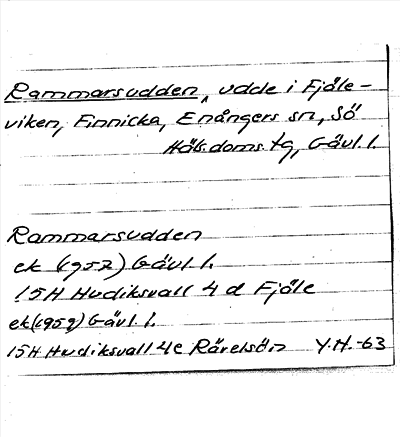 Rammarsudden, udde i Fjäle-
viken, Finnicka, Enångers sn, Sö
Häls. doms. tg, Gävl. l.
Rammarsudden
ek (1952) Gävl. l.
15H Hudiksvall 4 d Fjäle
ek (1959) Gävl. l.
15H Hudiksvall 4e Rävelsön Y.H.-63